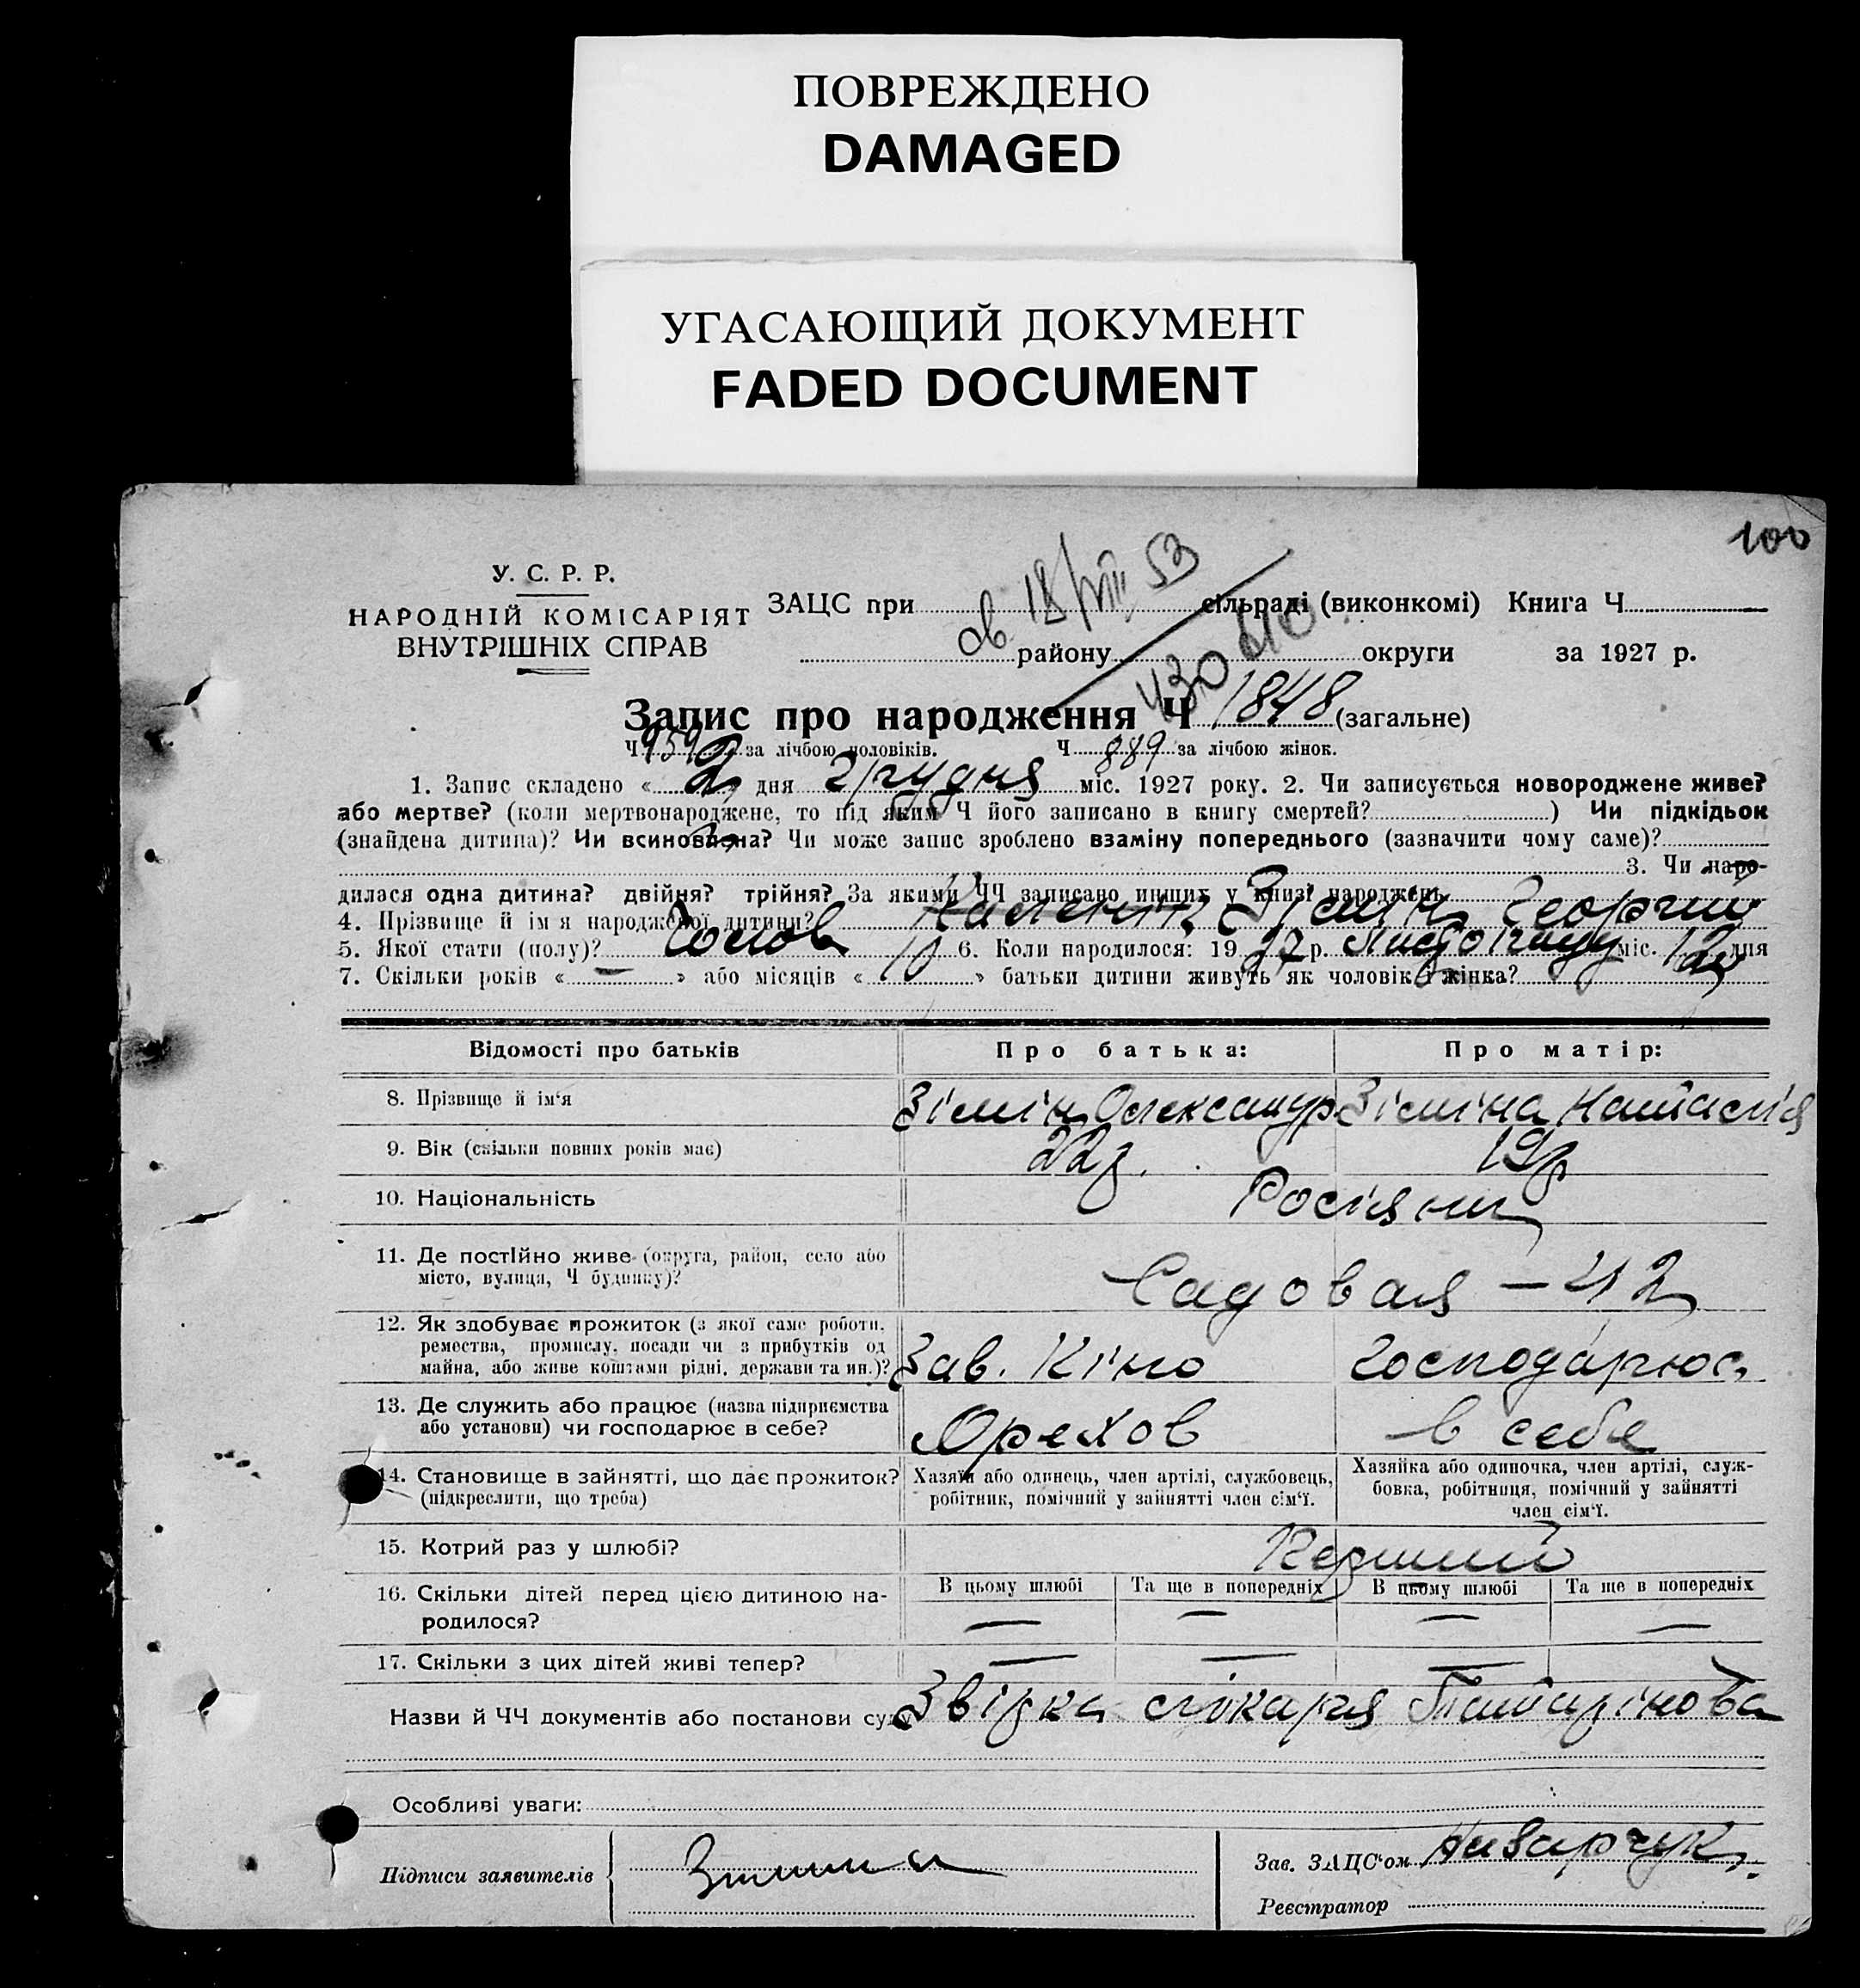 ПОВРЕЖДЕНО
DAMAGED
УГАСАЮЩИЙ ДОКУМЕНТ
FADED DOCUMENT
100
У. С. Р. Р.
НАРОДНІЙ КОМІСАРІЯТ
ВНУТРІШНІХ СПРАВ
ЗАЦС при сільраді (виконкомі) Книга Ч.
18/VIII 53
району округи за 1927 р.
Запис про народження Ч 1848 (загальне)
Ч 959 за лічбою чоловіків. Ч 889 за лічбою жінок.
1. Запис складено « 2 » дня Грудня міс. 1927 року. 2. Чи записується новороджене живе?
або мертве? (коли мертвонароджене, то під яким Ч його записано в книгу смертей? ) Чи підкідьок
(знайдена дитина)? Чи всиновлена? Чи може запис зроблено взаміну попереднього (зазначити чому саме)?
3. Чи наро-
дилася одна дитина? двійня? трійня? За якими ЧЧ записано инших у книзі народжень
4. Прізвище й ім я народженої дитини? Зімін Георгий
5. Якої стати (полу)? 6. Коли народилося: 19 27 р. Листопаду міс. 12 дня
7. Скільки років « — » або місяців « 10 » батьки дитини живуть як чоловік і жінка?
Відомості про батьків Про батька: Про матір:
8. Прізвище й ім'я Зімін Олександр Зіміна Наталія
9. Вік (скільки повних років має) 22 р. 19 р.
10. Національність Росіяни
11. Де постІйно живе (округа, район, село або
місто, вулиця, Ч будинку)? Садовая — 42
12. Як здобуває прожиток (з якої саме роботи,
ремества, промислу, посади чи з прибутків од
майна, або живе коштами рідні, держави та ин.)? Зав. Кіно Господарює
13. Де служить або працює (назва підприємства
або установи) чи господарює в себе? Орехов в себе
14. Становище в зайнятті, що дає прожиток?
(підкреслити, що треба)
Хазяїн або одинець, член артілі, службовець,
робітник, помічний у зайнятті член сім'ї.
Хазяйка або одиночка, член артілі, служ-
бовка, робітниця, помічний у зайнятті
член сім'ї.
15. Котрий раз у шлюбі? Перший
16. Скільки дітей перед цією дитиною на-
родилося?
В цьому шлюбі Та ще в попередніх В цьому шлюбі Та ще в попередніх
— — — —
17. Скільки з цих дітей живі тепер? — — — —
Назви й ЧЧ документів або постанови суду Звірка лікаря Татарінова
Особливі уваги:
Підписи заявителів Зимина
Зав. ЗАЦС'ом
Реєстратор